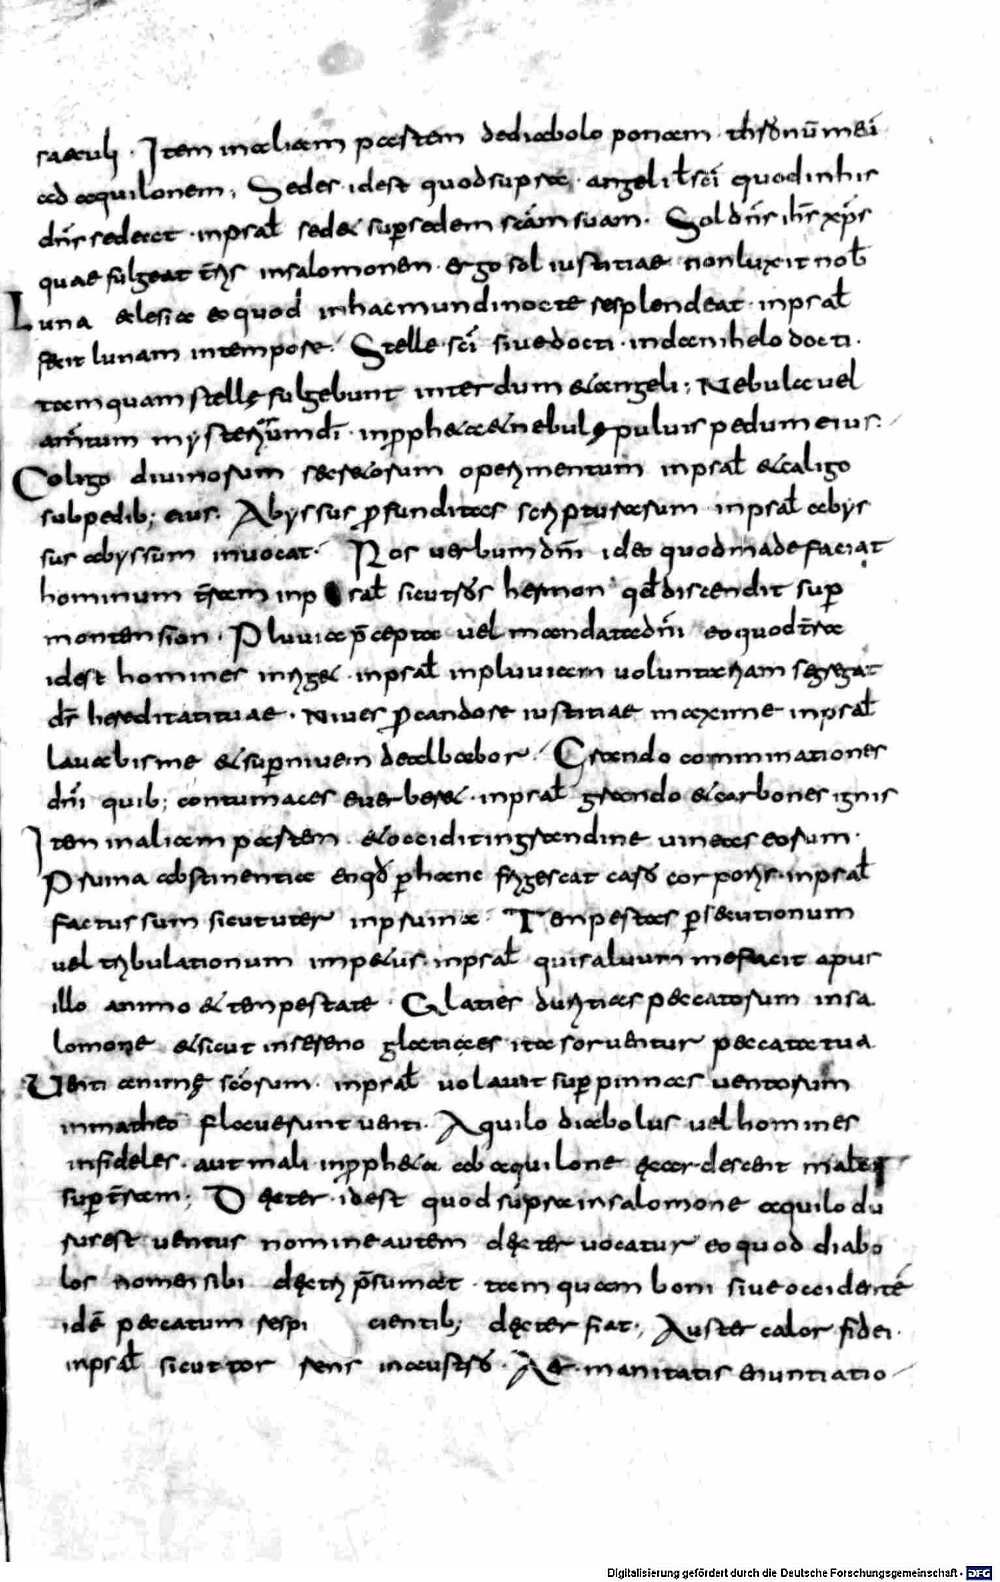 saeculi. Item in aliam partem de diabolo ponam thronū mei
ad aquilonem; Sedes idest quod supra. angeli ł sc̄i quod in his
dn̄s sedeat. in psal̄ sedet sup̱ sedem sc̄am suam. Sol dn̄s ih̄s xp̄s
quae fulgeat t̄ris in salomonen. ergo sol iustitiae non luxit nob̄
Luna eclesia eo quod in hac mundi nocte resplendeat. in psal̄
fecit lunam in tempore. Stelle. sc̄i siue docti. in danihelo docti.
tamquam stellę fulgebunt interdum et angeli; Nebula uel
mysterium in p̱pheta et nebulę puluis pedum eius.
Caligo diuinorum secretorum operimentum in psal̄ et caligo
sub pedib; eius. Abyssus p̱funditas scripturarum in psal̄ abys
sus abyssum inuocat. Ros uerbum dn̄i ideo quod madefaciat
hominum t̄ram in psal̄ sicut ros hermon qd̄ discendit sup̱
monten sion. Pluuia p̄cepta uel mandata dn̄i eo quod t̄ra
idest homines riget. in psal̄ in pluuiam uoluntariam segregat
ds̄ hereditati tuae. Niues p̱ candore iustitiae maxime in psal̄
lauabis me et sup̱ niuem dealbabor. Grando comminationes
dn̄i quib; contumaces euerberet. in psal̄ grando et carbones ignis
Iten in aliam partem et occidit in grandine uineas eorum.
Pruina abstinentia eo qđ p̱ hanc frigescat caro corporis. in psal̄
factus sum sicut uter in pruina. Tenpestas p̱secutionum
uel tribulationum impetus. in psal̄ qui saluum me facit apus
illo animo et tenpestate. Glaties duritias peccatorum in sa
lomone et sicut in sereno glatiaes ita soruentur peccata tua
Uenti animę sc̄orum. in psal̄ uolauit sup̱ pinnas uentorum
in matheo flauerunt uenti. Aquilo diabolus uel homines
infideles. aut mali in p̱pheta ab aquilone descent
sup̱ t̄ram; Dęxter. idest quod supra in salomone aquilo du
rus est uentus nomine autem dęxter uocatur eo quod diabo
los nomen sibi dęxtri p̄sumat. tam quam boni siue occidentē
idē peccatum respi cientib; dęxter fiat; Auster calor fidei.
in psal̄ sicut torrens in austro. manitatis enuntiatio